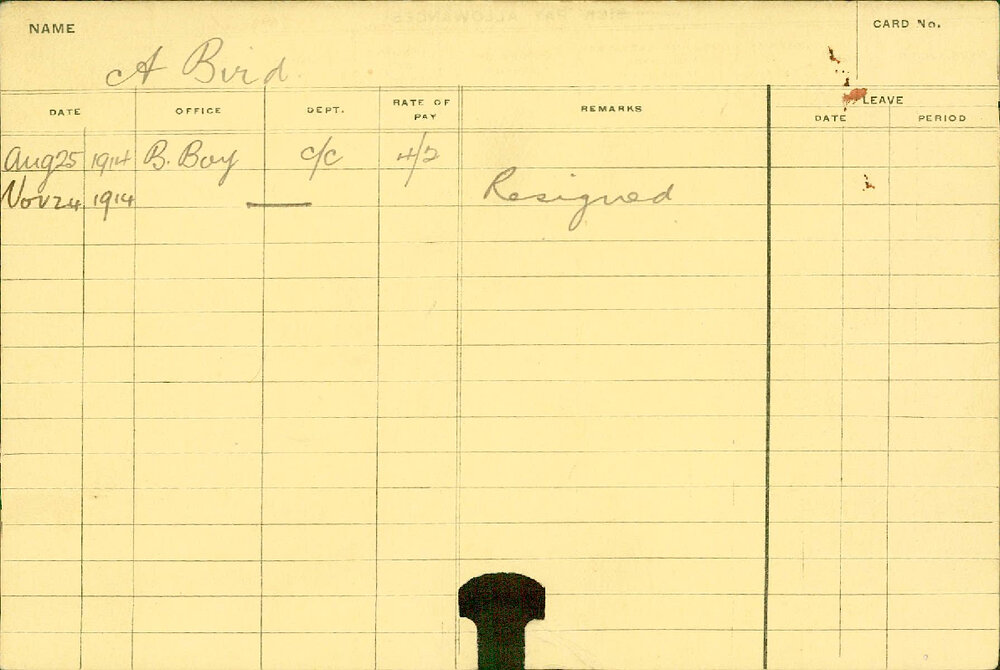 NAME
CARD No.
A Bird
DATE OFFICE DEPT. RATE OF PAY REMARKS LEAVE
DATE PERIOD
Aug 25 1914 B. Boy C/C 4/2
Nov 24 1914 — Resigned